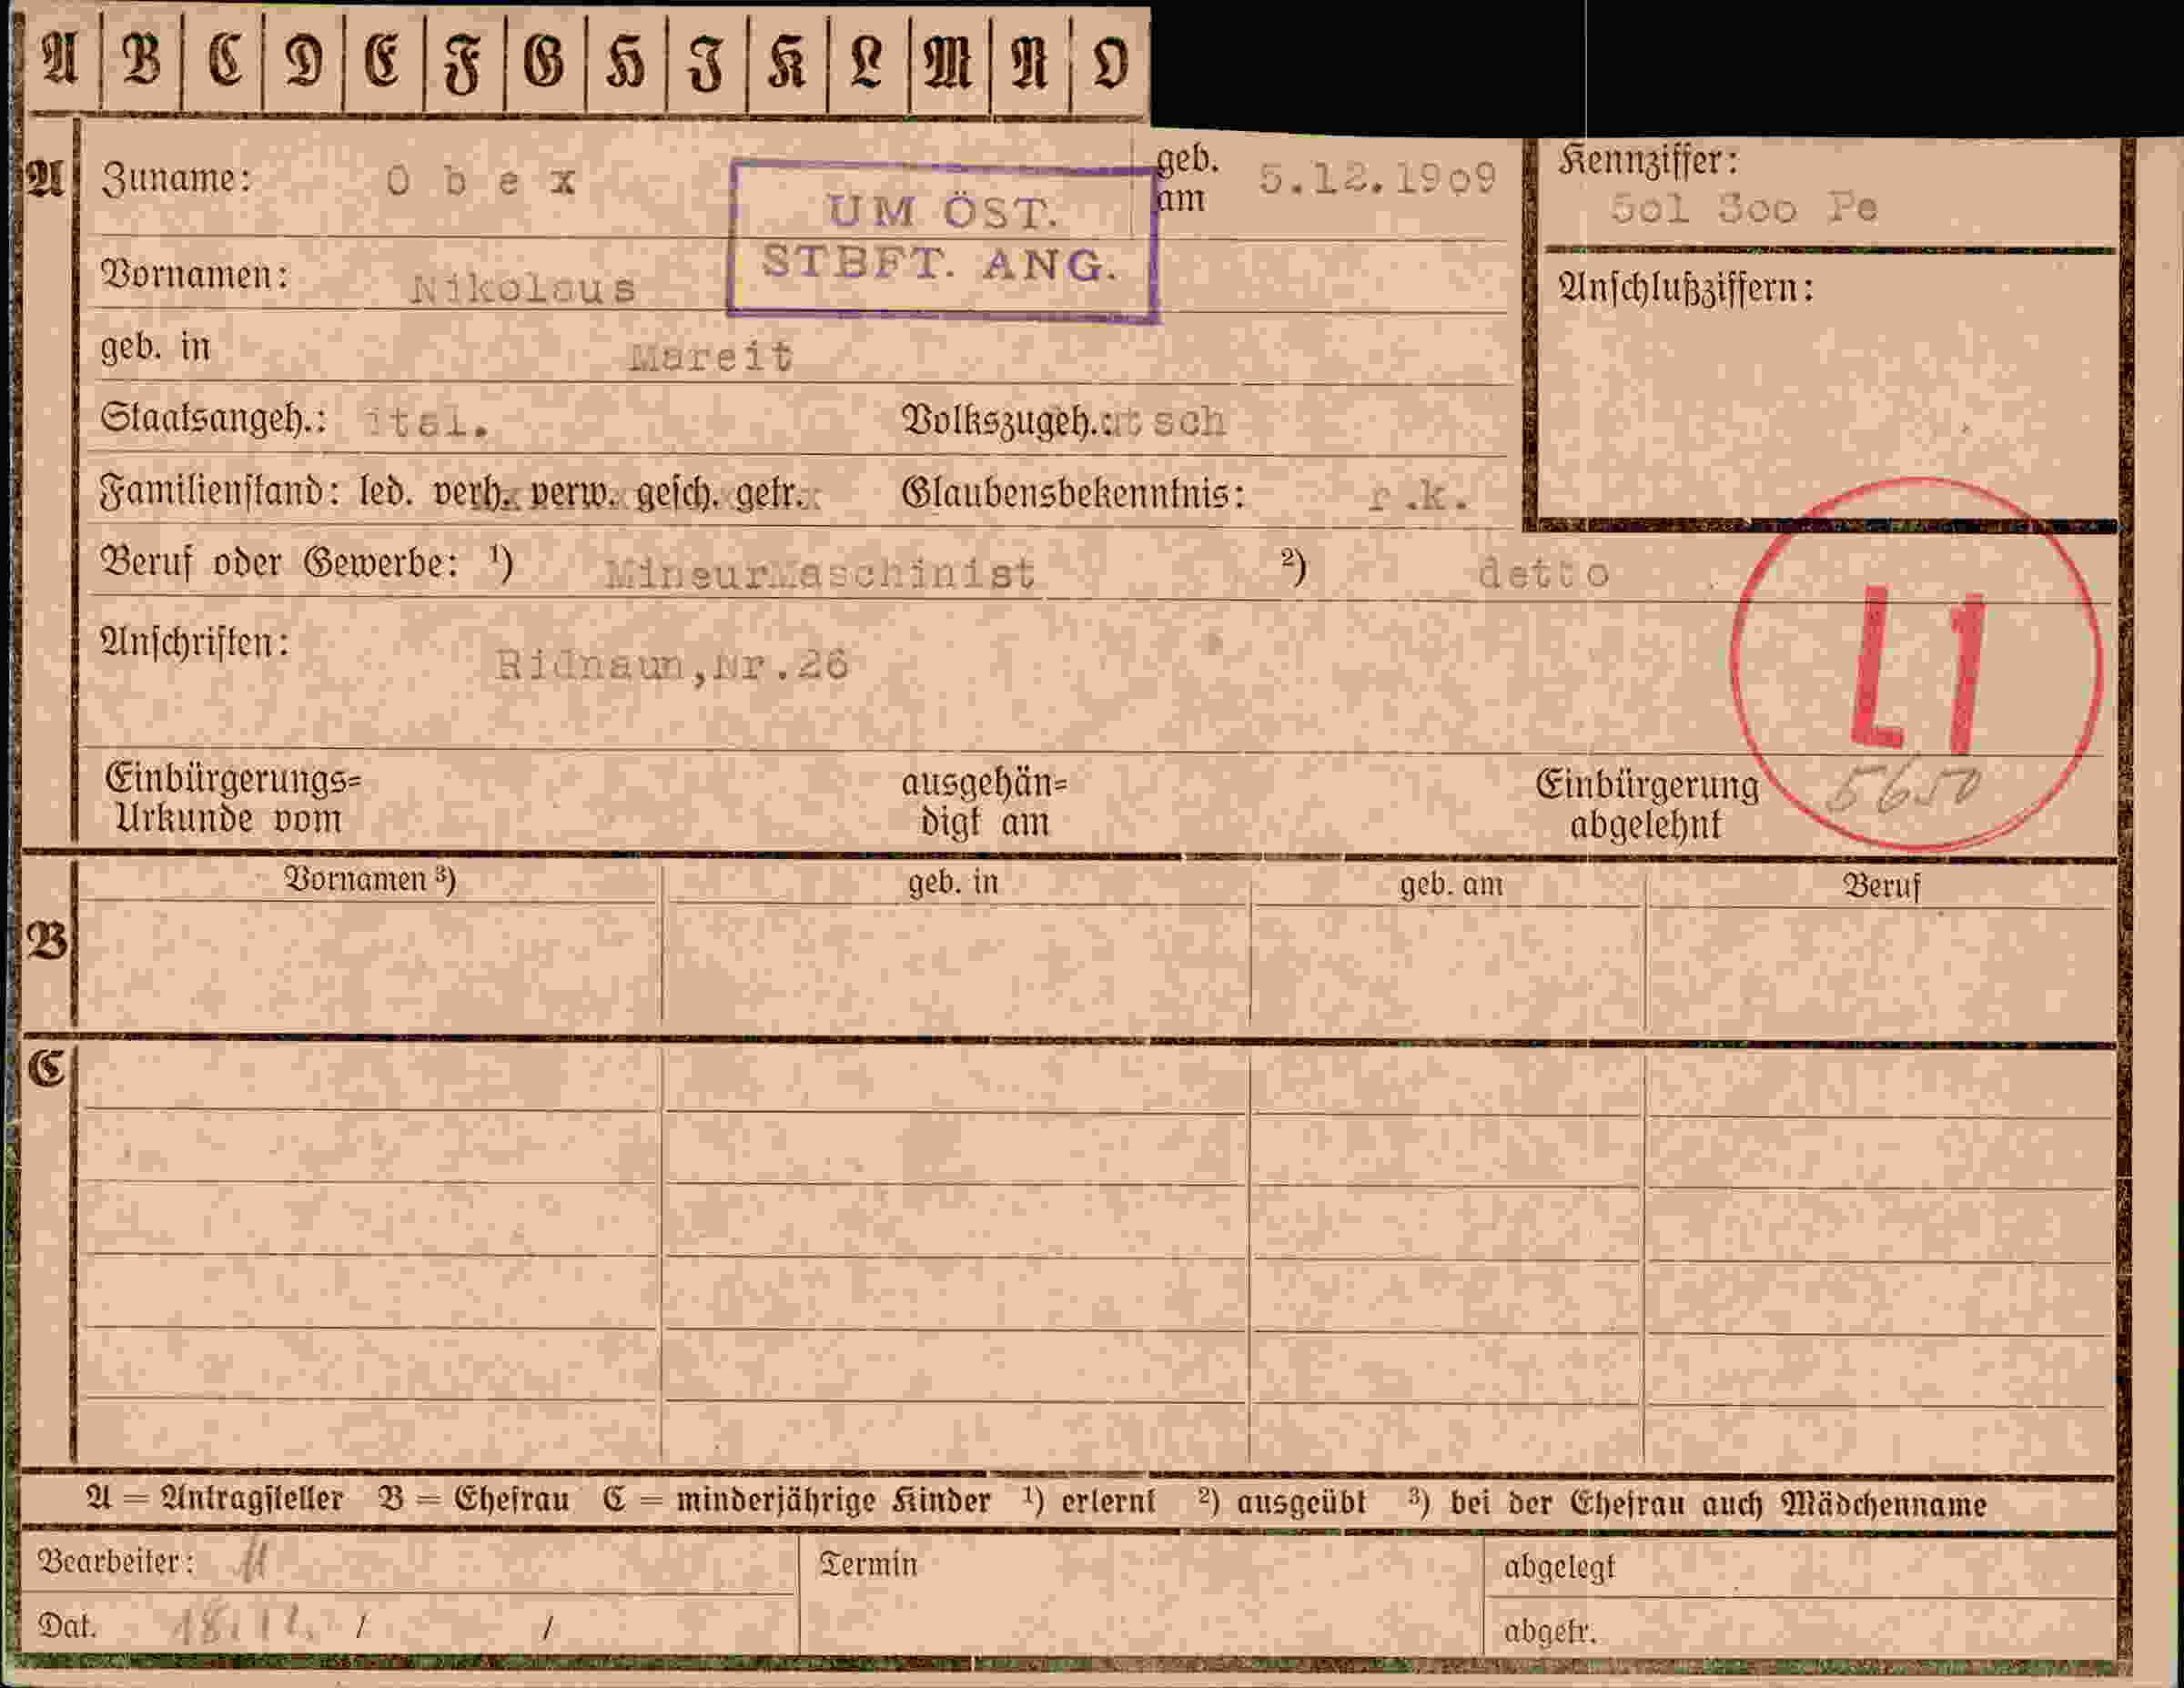 A B C D E F G H J K L M N O
A Zuname: Obex geb. am 5.12.1909 Kennziffer: 501 300 Pe
UM ÖST.
STBFT. ANG.
Vornamen: Nikolaus Anschlußziffern:
geb. in Mareit
Staatsangeh.: ital. Volkszugeh.: utsch
Familienstand: led. verh. verw. gesch. getr. Glaubensbekenntnis: r.k.
Beruf oder Gewerbe: ¹) Mineur Maschinist ²) detto
L1
Anschriften: Ridnaun, Nr. 26
5650
Einbürgerungs= ausgehän= Einbürgerung
Urkunde vom digt am abgelehnt
Vornamen ³) geb. in geb. am Beruf
B
C
A = Antragsteller B = Ehefrau C = minderjährige Kinder ¹) erlernt ²) ausgeübt ³) bei der Ehefrau auch Mädchenname
Bearbeiter: Termin abgelegt
Dat. / / abgetr.